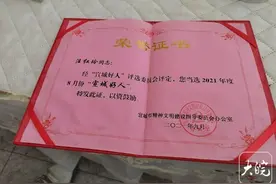 荣誉证书
汪红玲同志:
经“宣城好人”评选委员会评定，您当选2021年度
8月份“宣城好人”。
特发此证，以资鼓励
宣城市精神文明建设指导委员会办公室
二〇二一年九月
大皖